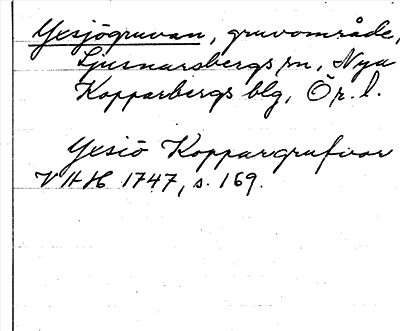 Yxsjögruvan, gruvområde,
Ljusnarsbergs sn, Nya
Kopparbergs blg, Ör. l.
Yxsiö Koppargrufvor
VHH 1747, s. 169.